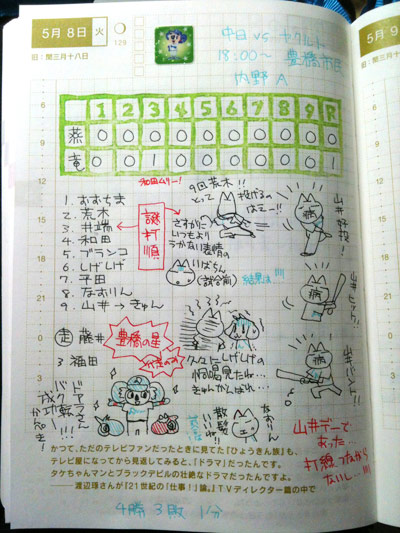 5月 8日 火
旧:閏三月十八日
129
中日 vs ヤクルト
18:00〜 豊橋市民
内野 A
5月 9
旧:閏三
1 2 3 4 5 6 7 8 9 R
燕 0 0 0 0 0 0 0 0 0 0
竜 0 0 1 0 0 0 0 0 0 1
和田ムリー!
1. おおちま
2. 荒木
3. 井端
4. 和田
5. ブランコ
6. しげしげ
7. 平田
8. なおりん
9. 山井→きゅん
謎打順
9回荒木!!
とって
投げるの
はえー!!
さすがに
いつもより
うかない表情の
いばらん
(試合前)
結果は!!!
山井好投!
山井ヒット!!
山井バント!
走 藤井
3 福田
豊橋の星
久々にしげしげの
恫喝見たぜ…
きゅんがんばれ…
なおりん
散髪
いいね!!
山井デーで
あった…
打線つながら
ないし…!!!
かつて、ただのテレビファンだったときに見てた『ひょうきん族』も、
テレビ屋になってから見返してみると、『ドラマ』だったんです。
タケちゃんマンとブラックデビルの壮絶なドラマだったんですよ。
——渡辺球さんが『21世紀の「仕事!」論。』TVディレクター篇の中で
4勝 3敗 1分